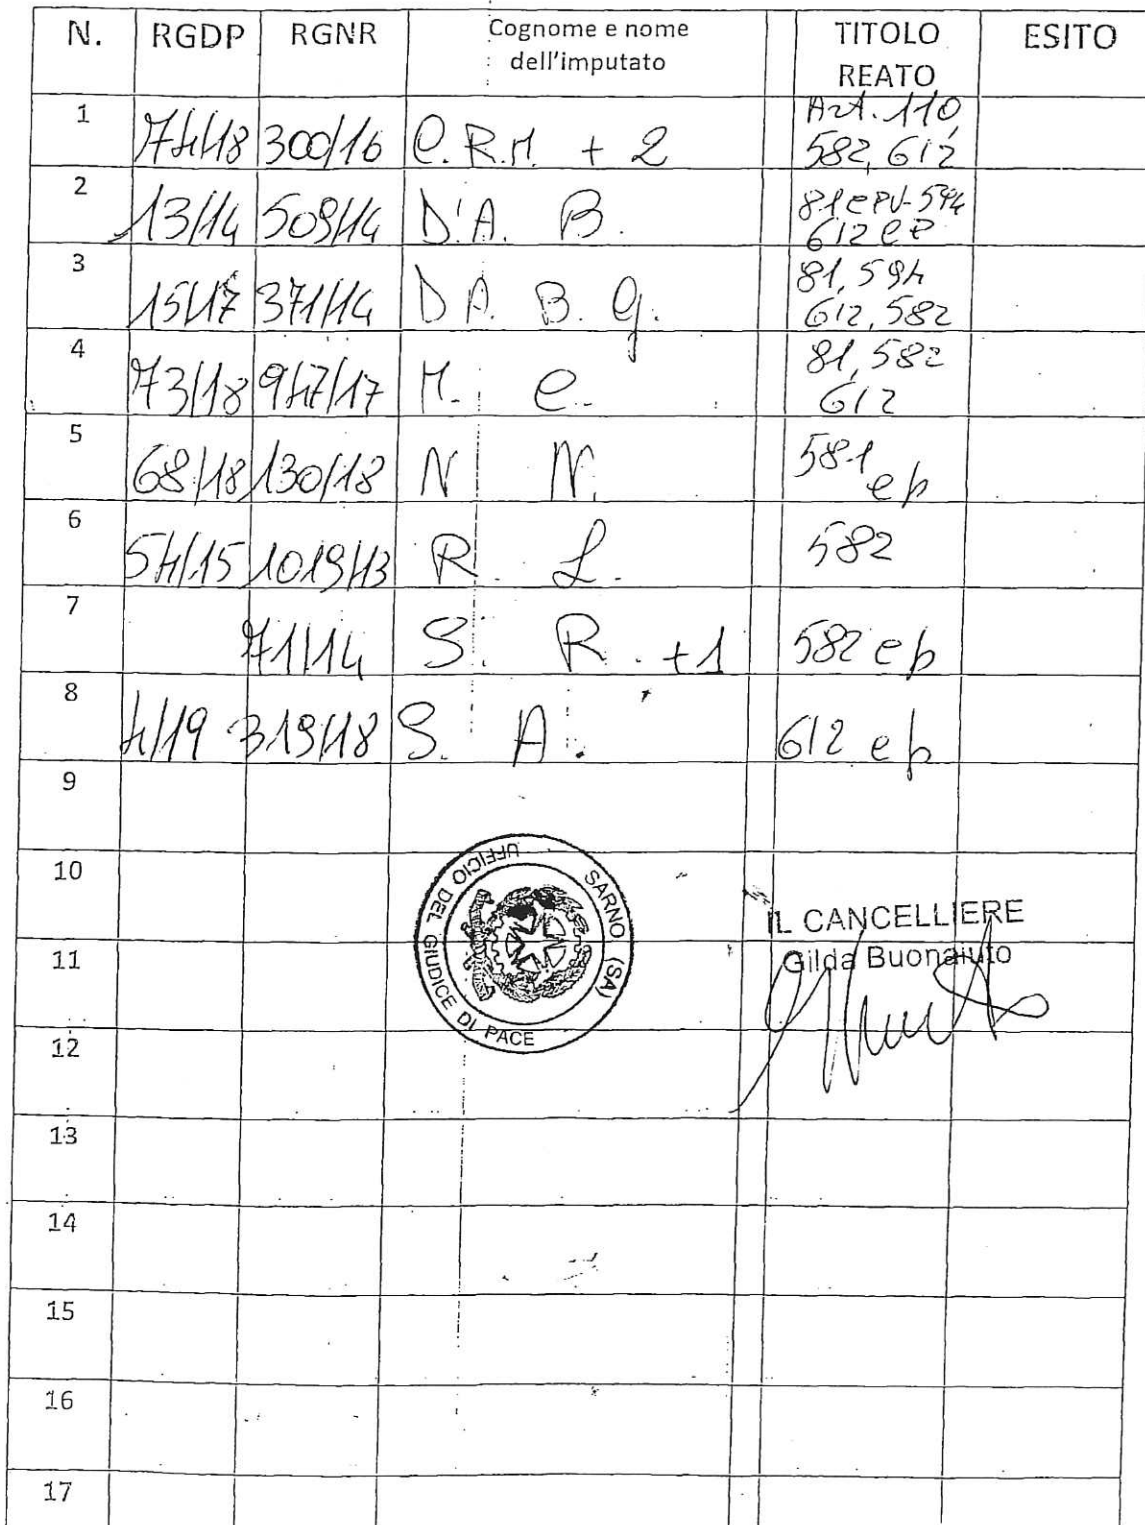 N. RGDP RGNR Cognome e nome dell'imputato TITOLO REATO ESITO
1 74/18 300/16 C. R. M. + 2 Art. 110, 582, 612
2 13/14 509/14 D'A. B. 81 cpv - 594 612 cp
3 15/17 371/14 D A. B. G. 81, 594 612, 582
4 73/18 947/17 M. C. 81, 582 612
5 68/18 130/18 N N. 581 cp
6 54/15 1019/13 R. L. 582
7 71/14 S. R. + 1 582 cp
8 4/19 319/18 S. A. 612 cp
9
10
UFFICIO DEL GIUDICE DI PACE
SARNO (SA)
IL CANCELLIERE
11
Gilda Buonaiuto
12
13
14
15
16
17